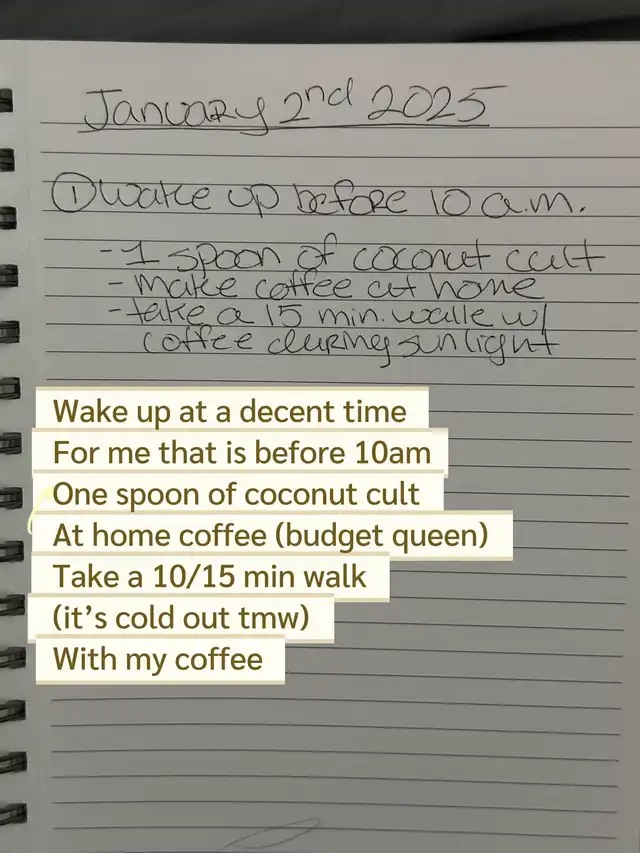 January 2nd 2025
① Wake up before 10 a.m.
- 1 spoon of coconut cult
- make coffee at home
- take a 15 min. walk w/
coffee during sunlight
Wake up at a decent time
For me that is before 10am
One spoon of coconut cult
At home coffee (budget queen)
Take a 10/15 min walk
(it's cold out tmw)
With my coffee